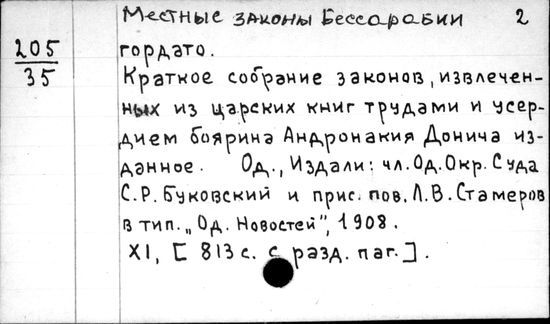 Местные законы Бессарабии 2
205
35
гордато.
Краткое собрание законов, извлечен-
ных из царских книг трудами и усер-
дием боярина Андронакия Донича из-
данное. Од., Издали: чл. Од. Окр. Суда
С.Р. Буковский и прис. пов. Л.В. Стамеров
в тип. „Од. Новостей", 1908.
XI, [ 813 с. с разд. паг. ] .